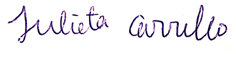 Julieta Carrullo